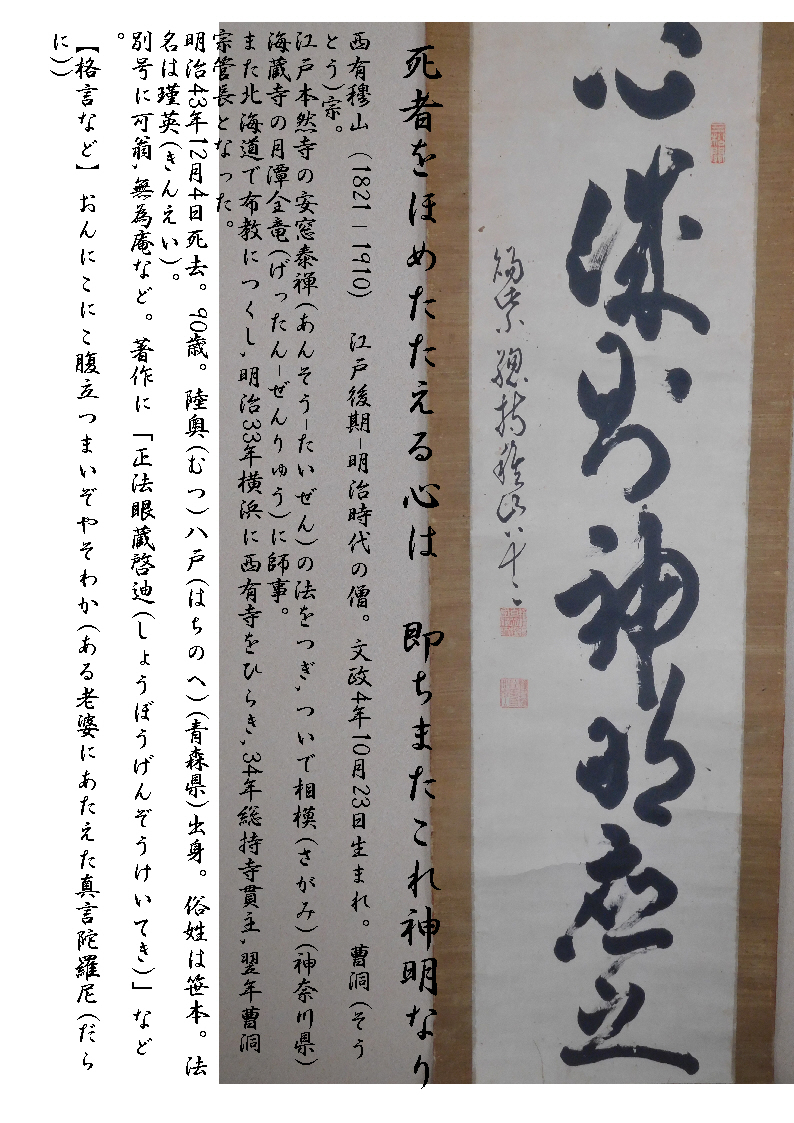 心誠則神明應之
賜紫 總持穆山八十二
死者をほめたたえる心は 即ちまたこれ神明なり
西有穆山 (1821-1910) 江戸後期-明治時代の僧。文政4年10月23日生まれ。曹洞(そう
とう)宗。
江戸本然寺の安窓泰禅(あんそう-たいぜん)の法をつぎ,ついで相模(さがみ)(神奈川県)
海蔵寺の月潭全竜(げったん-ぜんりゅう)に師事。
また北海道で布教につくし,明治33年横浜に西有寺をひらき,34年総持寺貫主,翌年曹洞
宗管長となった。
明治43年12月4日死去。90歳。陸奥(むつ)八戸(はちのへ)(青森県)出身。俗姓は笹本。法
名は瑾英(きんえい)。
別号に可翁,無為庵など。著作に「正法眼蔵啓迪(しょうぼうげんぞうけいてき)」など
。
【格言など】おんにこにこ腹立つまいぞやそわか(ある老婆にあたえた真言陀羅尼(だら
に))